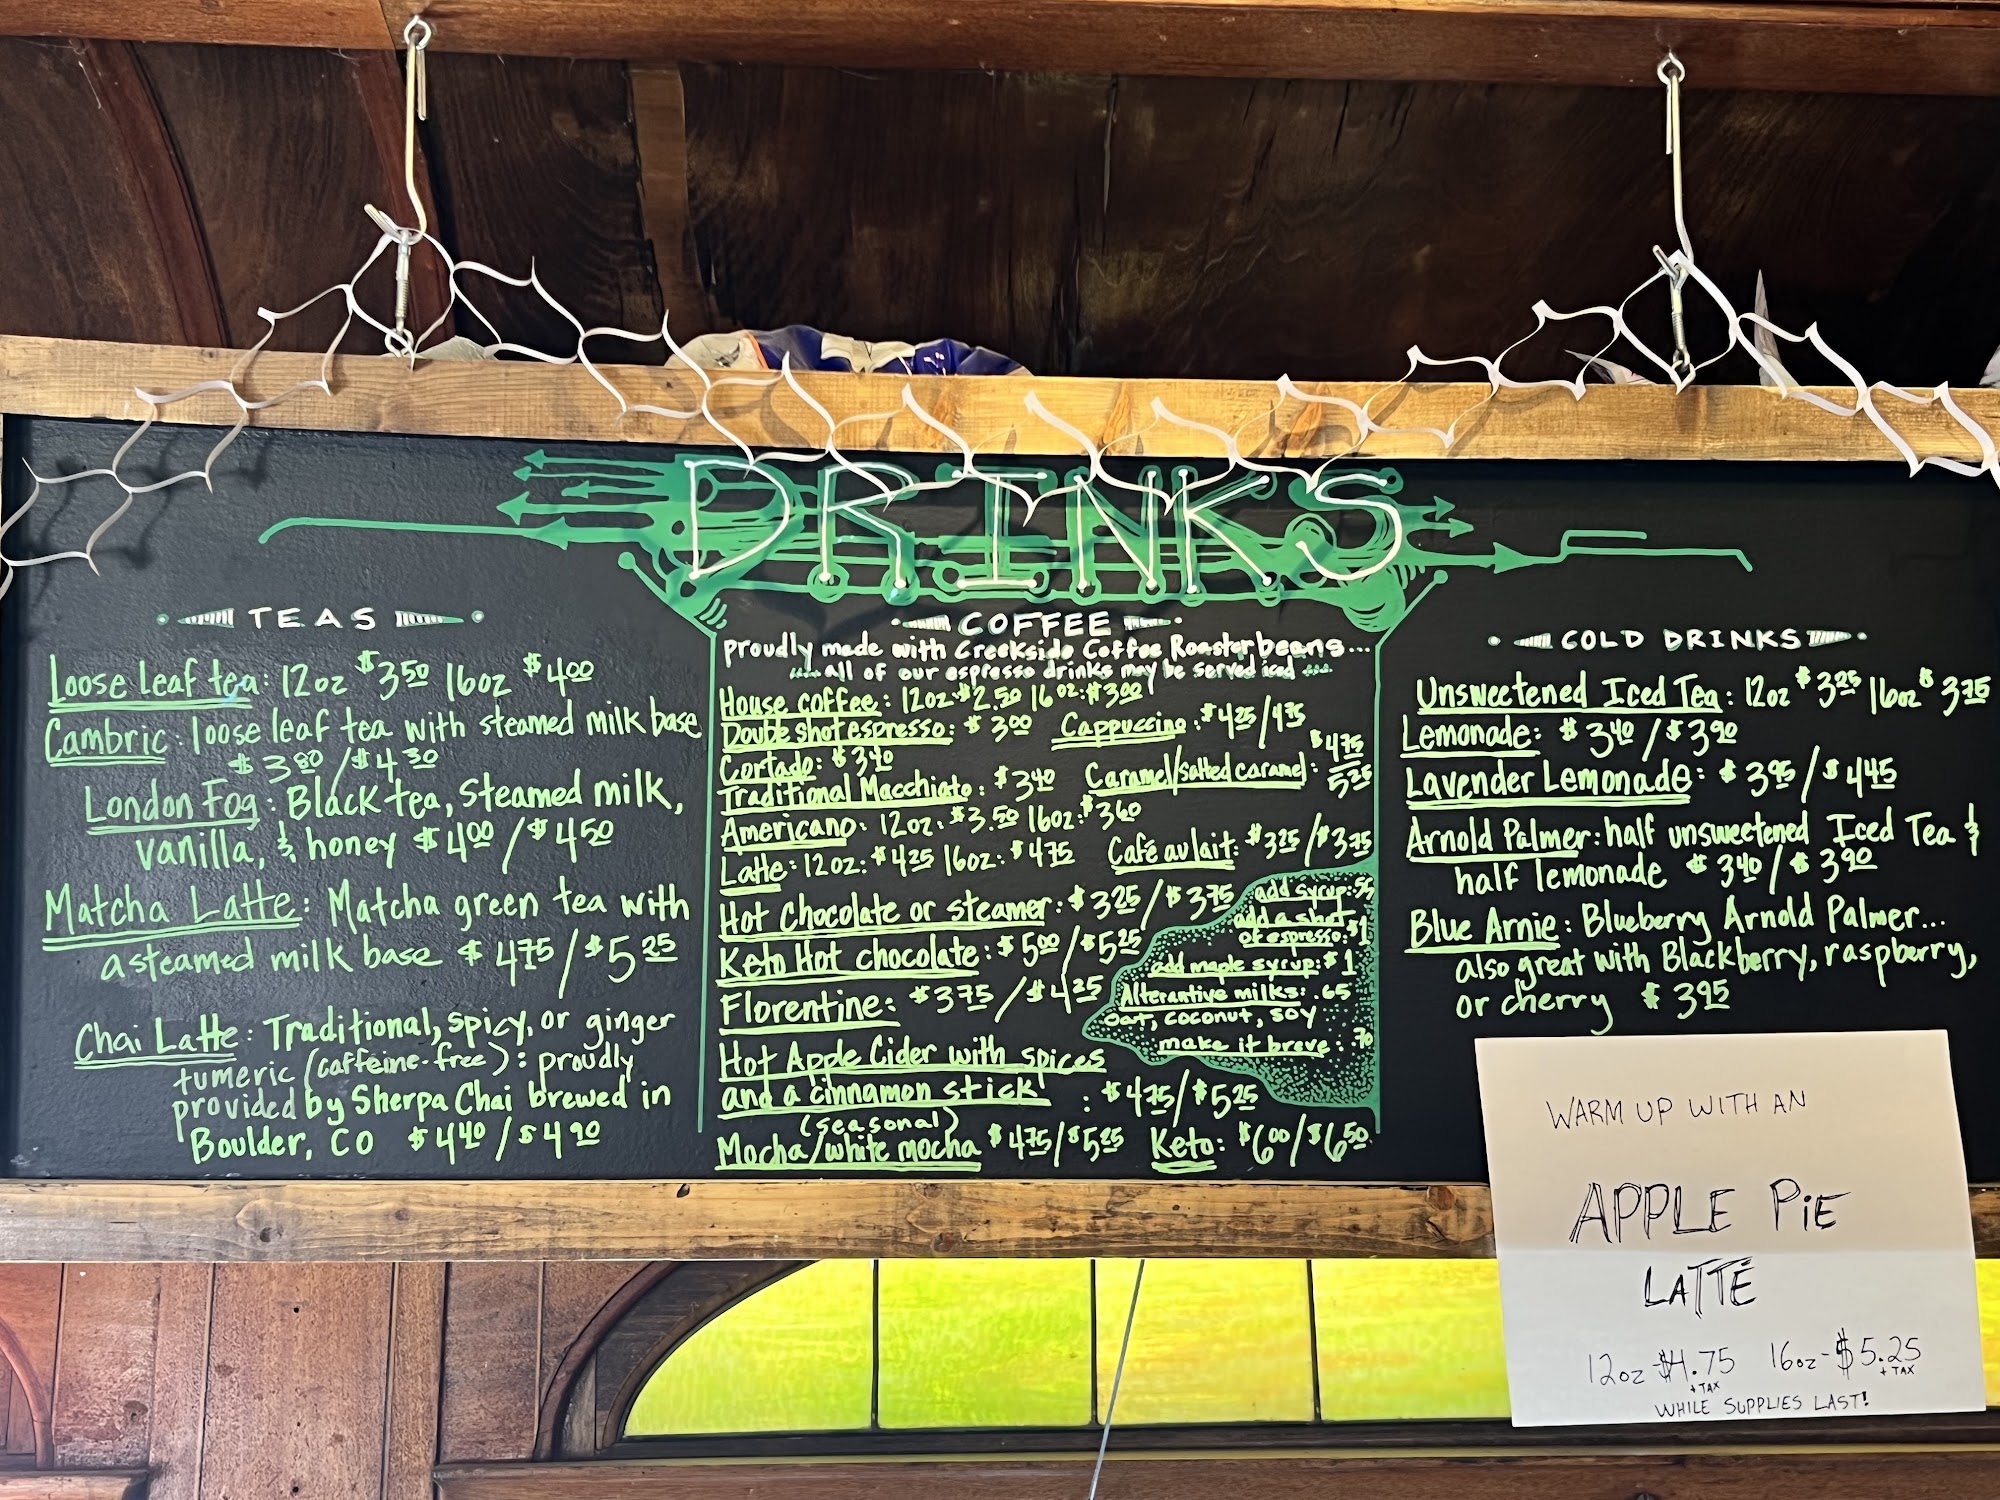 DRINKS
TEAS
Loose Leaf tea: 12oz $3.50 16oz $4.00
Cambric: loose leaf tea with steamed milk base
$3.80/$4.30
London Fog: Black tea, steamed milk,
vanilla, & honey $4.00/$4.50
Matcha Latte: Matcha green tea with
a steamed milk base $4.75/$5.25
Chai Latte: Traditional, spicy, or ginger
tumeric (caffeine-free): proudly
provided by Sherpa Chai brewed in
Boulder, CO $4.40/$4.90
COFFEE
proudly made with Creekside Coffee Roaster beans...
...all of our espresso drinks may be served iced ...
House coffee: 12oz: $2.50 16oz: $3.00
Double shot espresso: $3.00 Cappuccino: $4.25/4.75
Cortado: $3.40
Traditional Macchiato: $3.40 Caramel/salted caramel: $4.75
5.25
Americano: 12oz: $3.50 16oz: $3.60
Latte: 12oz: $4.25 16oz: $4.75 Café au lait: $3.25/$3.75
Hot Chocolate or steamer: $3.25/$3.75
Keto Hot chocolate: $5.00/$5.25
Florentine: $3.75/$4.25
Hot Apple Cider with spices
and a cinnamon stick : $4.75/$5.25
(seasonal)
Mocha/white mocha $4.75/$5.25 Keto: $6.00/$6.50
add syrup:
add a shot
of espresso: $1
add maple syrup: $1
Alterantive milks: .65
oat, coconut, soy
make it breve: 70
COLD DRINKS
Unsweetened Iced Tea: 12oz $3.25 16oz $3.75
Lemonade: $3.40/$3.90
Lavender Lemonade: $3.95/$4.45
Arnold Palmer: half unsweetened Iced Tea &
half lemonade $3.40/$3.90
Blue Arnie: Blueberry Arnold Palmer...
also great with Blackberry, raspberry,
or cherry $3.95
WARM UP WITH AN
APPLE PiE
LATTE
12oz-$4.75 16oz-$5.25
+TAX +TAX
WHILE SUPPLIES LAST!